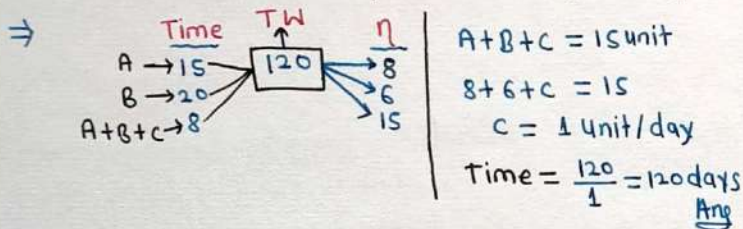 ⇒ Time TW η
A → 15 120 8
B → 20 6
A+B+C → 8 15
A+B+C = 15 unit
8+6+C = 15
C = 1 unit/day
Time = 120/1 = 120 days
Ans